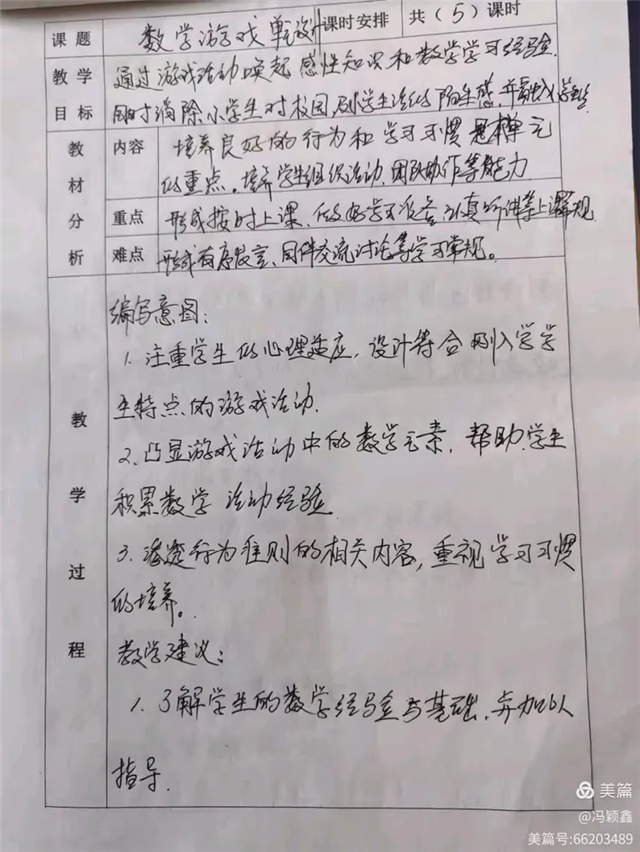 课题 数学游戏单元设计 课时安排 共（5）课时
教学目标 通过游戏活动唤起感性知识和数学学习经验.
同时消除小学生对校园,小学生活的陌生感,并融入小学生活
教材分析 内容 培养良好的行为和学习习惯是本单元
的重点。培养学生组织活动.团队协作等能力
重点 形成按时上课、做好学习准备、认真听讲等上课常规
难点 形成有序发言、同伴交流讨论等学习常规。
教学过程
编写意图：
1. 注重学生的心理适应，设计符合刚入学学
生特点的游戏活动.
2. 凸显游戏活动中的数学元素，帮助学生
积累数学活动经验
3. 渗透行为准则的相关内容，重视学习习惯
的培养。
教学建议：
1. 了解学生的数学经验与基础，并加以
指导.
美篇
@冯颖鑫
美篇号:66203489